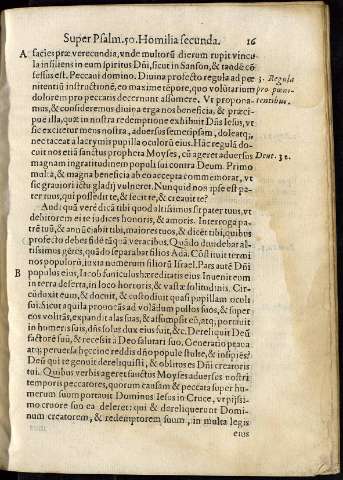 Super Psalm. 50. Homilia secunda. 16
A facies præ verecundia, vnde multorũ dierum rupit vincu
la insiliens in eum spiritus Dñi, sicut in Sanson, & tandẽ cõ
fessus est. Peccaui domino. Diuina profecto regula ad pœ 3. Regula
nitentiã instructiõ, eo maxime tẽpore, quo volũtarium pro pœni-
dolorem pro peccatis decernunt assumere. Vt propona tentibus.
mus, & consideremus diuina erga nos beneficia, & præci-
pue illa, quæ in nostra redemptione exhibuit Dñs Iesus, vt
sic excitetur mens nostra, aduersus semetipsam, doleatq́;,
nec taceat a lacrymis pupilla oculorũ eius. Hãc regulã do-
cuit nos etiã sanctus propheta Moyses, cũ ageret aduersus Deut. 32.
magnam ingratitudinem populi sui contra Deum. Primo
multa, & magna beneficia ab eo accepta commemorat, vt
sic grauiori ictu gladij vulneret. Nunquid non ipse est pa-
ter tuus, qui possedit te, & fecit te, & creauit te?
Audi quã verè dicã tibi quod altissimus sit pater tuus, vt
debitorem ei te iudices honoris, & amoris. Interroga pa-
trẽ tuũ, & annũciabit tibi, maiores tuos, & dicẽt tibi, quibus
profecto debes fidẽ tãquã veracibus. Quãdo diuidebat al-
tissimus gẽtes, quãdo separabat filios Adã. Cõstituit termi
nos populorũ, iuxta numerum filiorũ Israel. Pars autẽ Dñi
B populus eius, Iacob funiculus hæreditatis eius. Inuenit eum
in terra deserta, in loco horroris, & vastæ solitudinis. Cir-
cũduxit eum, & docuit, & custodiuit quasi pupillam oculi
sui. Sicut aquila prouocãs ad volãdum pullos suos, & super
eos volitãs, expandit alas suas, & assumpsit eũ, atq́; portauit
in humeris suis, dñs solus dux eius fuit, &c. Dereliquit Deũ
factorẽ suũ, & recessit à Deo salutari suo. Generatio praua
atq́; peruersa hæccine reddis dño popule stulte, & insipiẽs?
Deũ qui te genuit dereliquisti, & oblitus es Dñi creatoris
tui. Quibus verbis ageret sanctus Moyses aduersus nostri
temporis peccatores, quorum causam & peccata super hu-
merum suum portauit Dominus Iesus in Cruce, vt ipsissi-
mo cruore suo ea deleret: qui & dereliquerunt Domi-
num creatorem, & redemptorem suum, in multa legis
eius